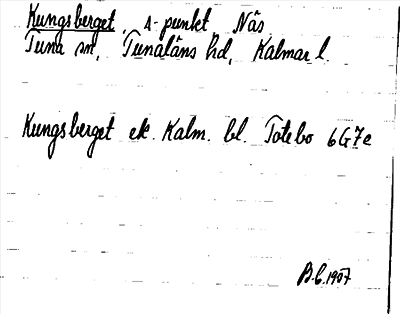 Kungsberget, A-punkt, Nås
Tuna sn, Tunaläns hd, Kalmar l.
Kungsberget ek. Kalm. bl. Totebo 6G7e
B.G. 1987